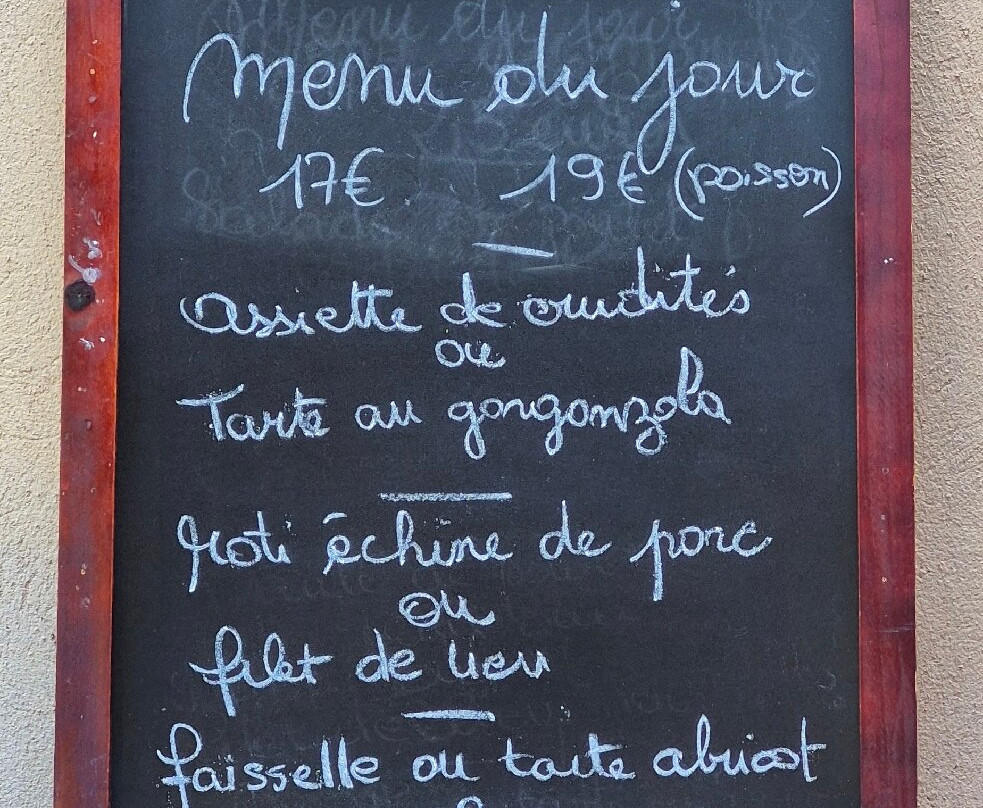 Menu du jour
17€ 19€ (poisson)
Assiette de crudités
ou
Tarte au gorgonzola
Roti échine de porc
ou
filet de lieu
faisselle ou tarte abricot